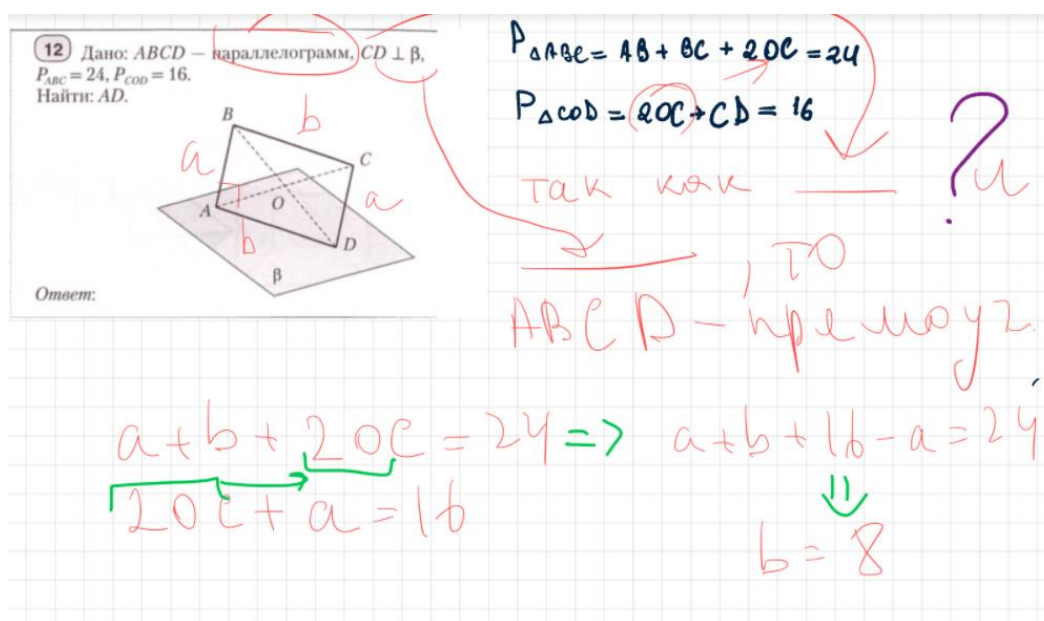 12 Дано: ABCD — параллелограмм, CD ⊥ β,
P_ABC = 24, P_COD = 16.
Найти: AD.
B
b
a
C
A
O
a
b
D
β
Ответ:
P△ABC = AB + BC + 2OC = 24
P△COD = 2OC + CD = 16
?
так как ___ и
___, то
ABCD - прямоуг.
a + b + 2OC = 24 => a + b + 16 - a = 24
2OC + a = 16
b = 8